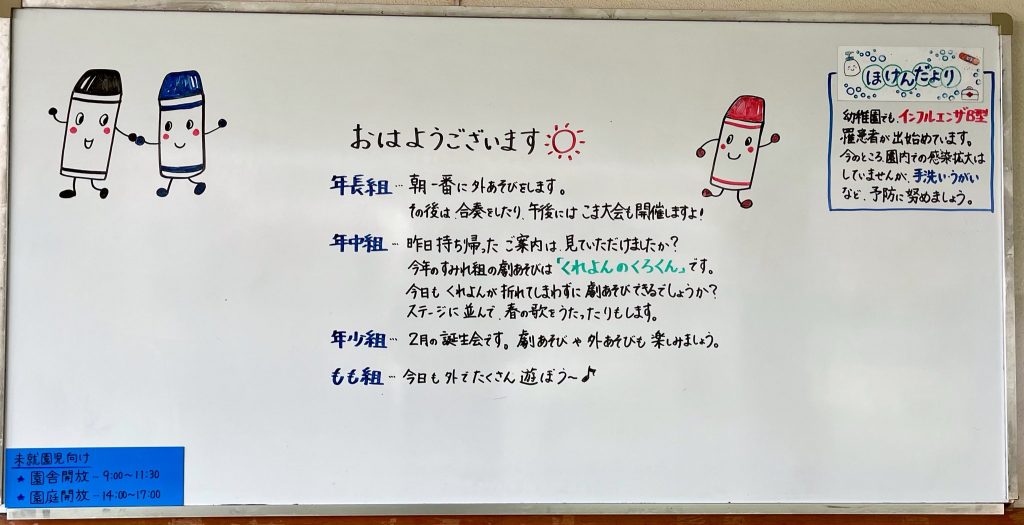 おはようございます
年長組…朝一番に外あそびをします。
その後は合奏をしたり、午後にはこま大会も開催しますよ!
年中組…昨日持ち帰ったご案内は、見ていただけましたか?
今年のすみれ組の劇あそびは「くれよんのくろくん」です。
今日もくれよんが折れてしまわずに劇あそびできるでしょうか?
ステージに並んで、春の歌をうたったりもします。
年少組…2月の誕生会です。劇あそびや外あそびも楽しみましょう。
もも組…今日も外でたくさん遊ぼう〜♪
ほけんだより
幼稚園でも、インフルエンザB型
罹患者が出始めています。
今のところ、園内での感染拡大は
していませんが、手洗い、うがい
など、予防に努めましょう。
未就園児向け
★園舎開放…9:00〜11:30
★園庭開放…14:00〜17:00